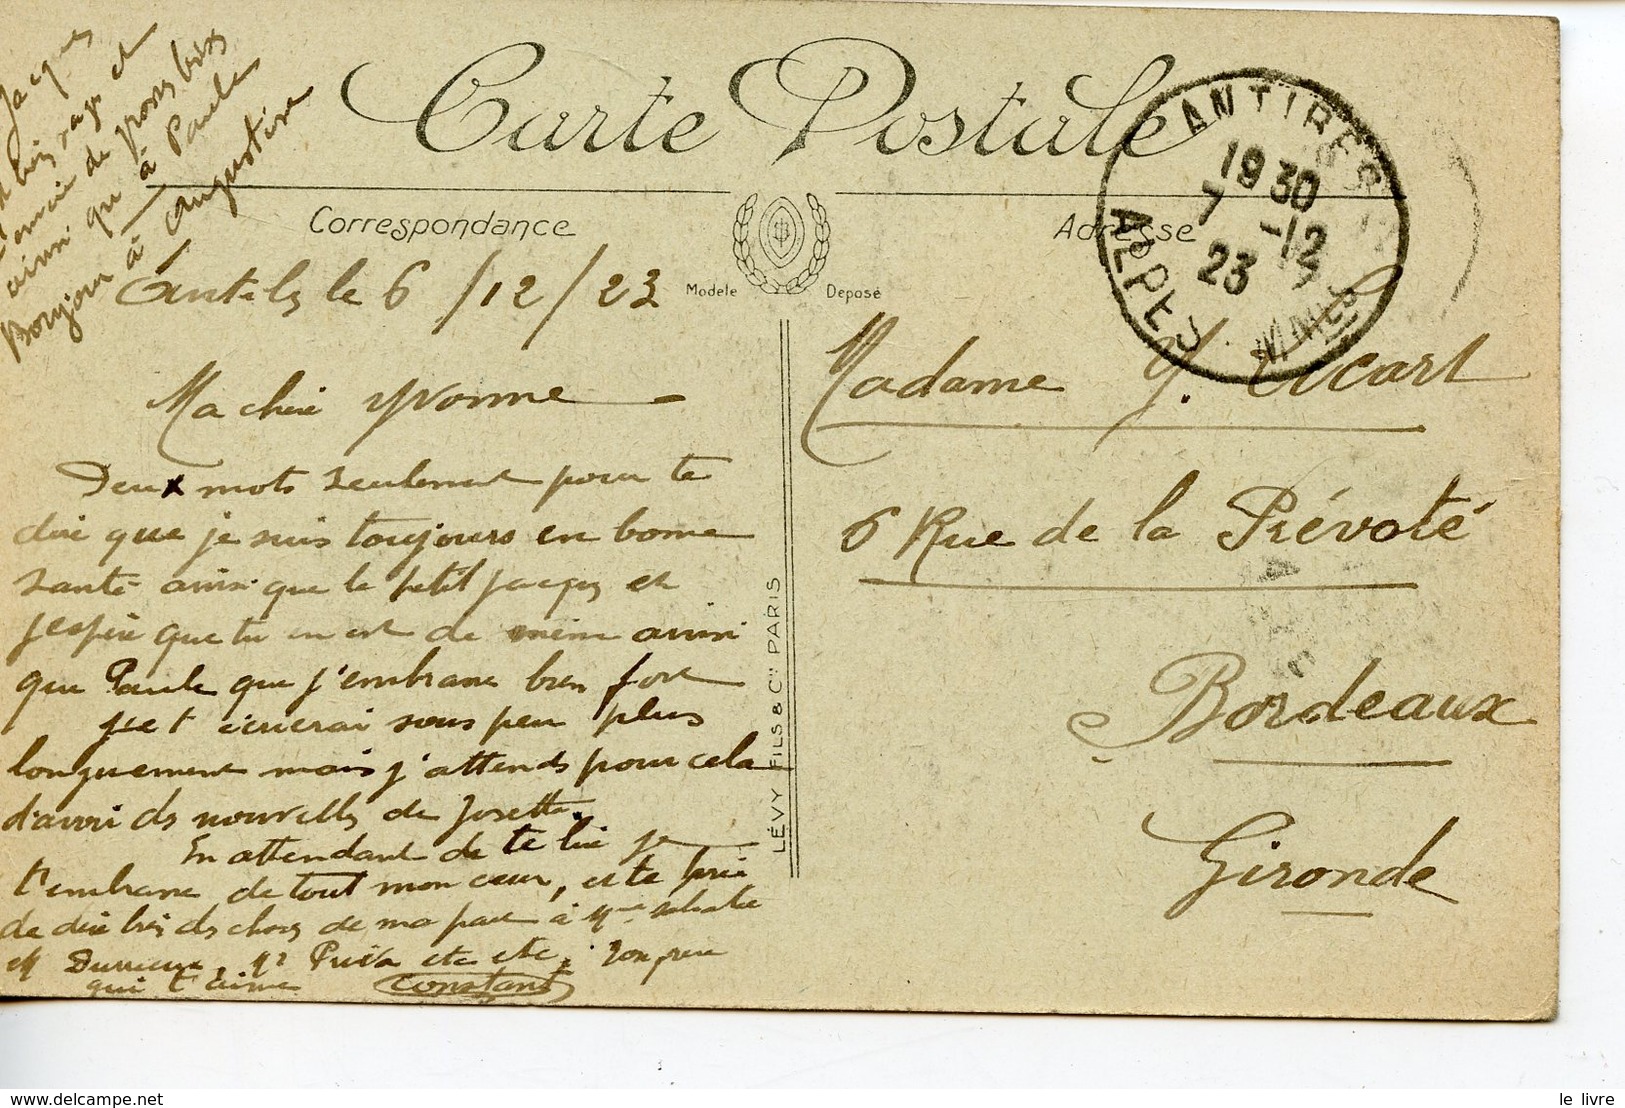 Jacques
est très sage et
t'envoie de gros bises
ainsi qu'à Paule
Bonjour à Augustine
Carte Postale
Correspondance
Adresse
Modele Deposé
ANTIBES
19 30
7 -12
23
ALPES MMES
Antibes le 6/12/23
Ma chère Yvonne
Deux mots seulement pour te
dire que je suis toujours en bonne
santé ainsi que le petit Jacques et
j'espère que tu en est de même ainsi
que Paule que j'embrasse bien fort
je t'écrierai sous peu plus
longuement mais j'attends pour cela
d'avoir des nouvelles de Josette.
En attendant de te lire je
t'embrasse de tout mon cœur, et te prie
de dire bien des choses de ma part à Mme
et Durrieux, Mr etc etc. Ton père
qui t'aime Constant
LÉVY FILS & Cie PARIS
Madame Y. Ricart
6 Rue de la Prévoté
Bordeaux
Gironde
le livre